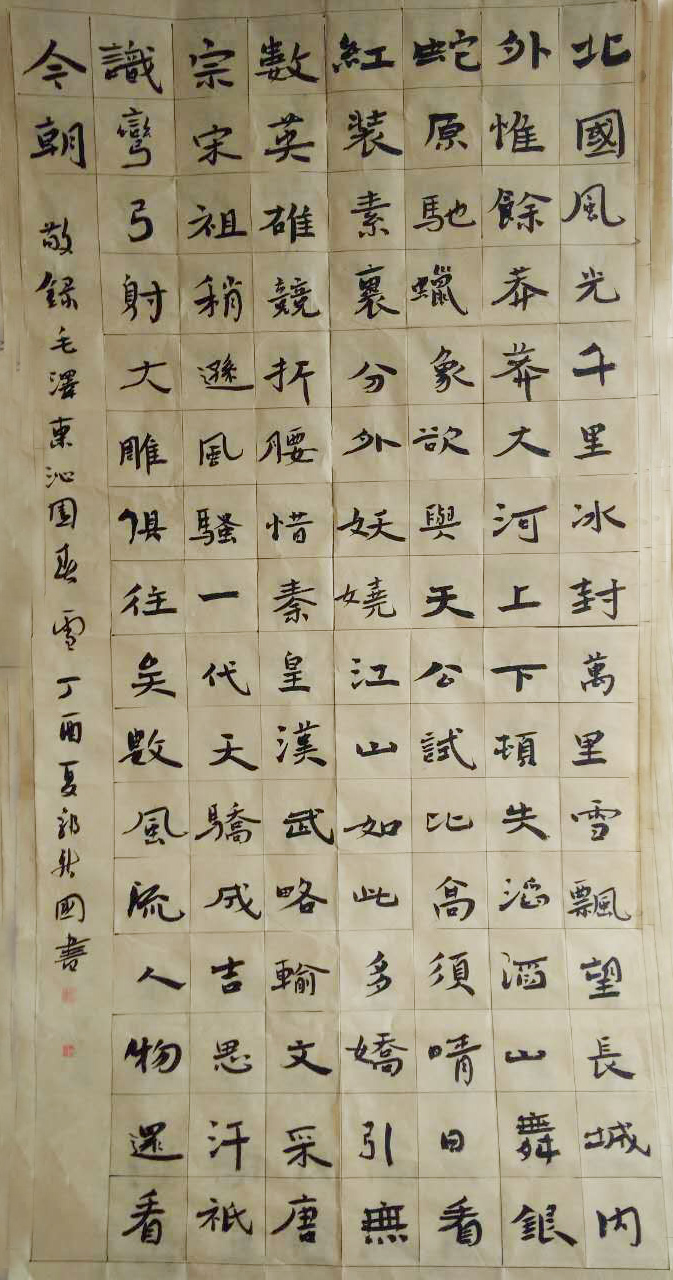 北國風光千里冰封萬里雪飄望長城内
外惟餘莽莽大河上下頓失滔滔山舞銀
蛇原馳蠟象欲與天公試比高須晴日看
紅装素裹分外妖嬈江山如此多嬌引無
數英雄競折腰惜秦皇漢武略輸文采唐
宗宋祖稍遜風騷一代天驕成吉思汗祇
識彎弓射大雕俱往矣數風流人物還看
今朝
敬錄毛澤東沁園春雪丁酉夏郭國書